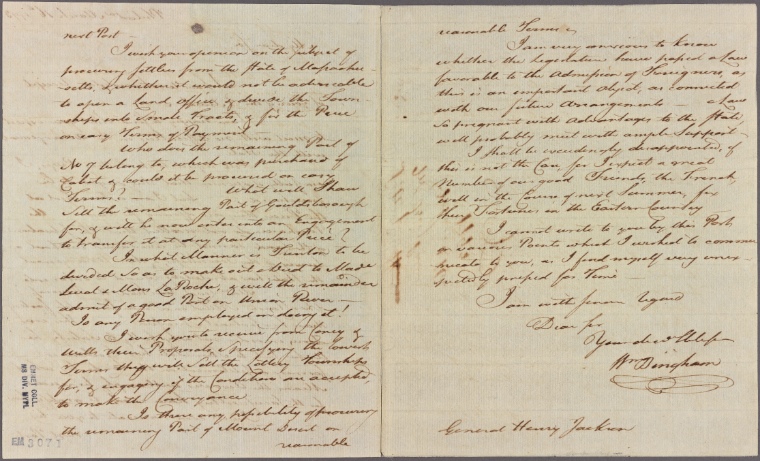 next Post —
I wish your opinion on the subject of
procuring settlers from the State of Massachu-
setts, & whether it would not be adviseable
to open a Land Office, & divide the Town
ships into Small Tracts, & fix the Price
on easy Terms of Payment —
Who does the remaining Part of
No 7 belong to, which was purchased of
Cabot & could it be procured on easy
Terms? — What will Shaw
Sell the remaining Part of Gouldsborough
for, & will he now enter into an Engagement
to transfer it at any particular Price?
In what Manner is Trenton to be
divided so as to make out a Deed to Madе
Leval & Mons La Roche, & will the remainder
admit of a good Port on Union River —
Is any Person employed in doing it!
I wish you to receive from Coney &
Wells their Proposals, specifying the lowest
Terms they will sell the Lottery Townships
for, & engaging if the Conditions are accepted,
to make the Conveyance
Is there any possibility of procuring
the remaining Part of Mount Desert on
reasonable
reasonable Terms —
I am very anxious to know
whether the legislature have passed a Law
favorable to the Admission of Foreigners, as
this is an important Object, as connected
with our future Arrangements — a Law
so pregnant with Advantages to the State,
will probably meet with ample Support —
I shall be exceedingly disappointed, if
this is not the Case, for I expect a great
Number of our good Friends, the French,
will in the Course of next Summer, fix
their Fortunes in the Eastern Country
I cannot write to you by this Post,
on various Points which I wished to commu
nicate to you, as I find myself very unex-
pectedly pressed for Time —
I am with sincere regard
Dear Sir
Your obed
Wm Bingham
General Henry Jackson
EMMET COLL.
MS DIV. NYPL
EM 3071